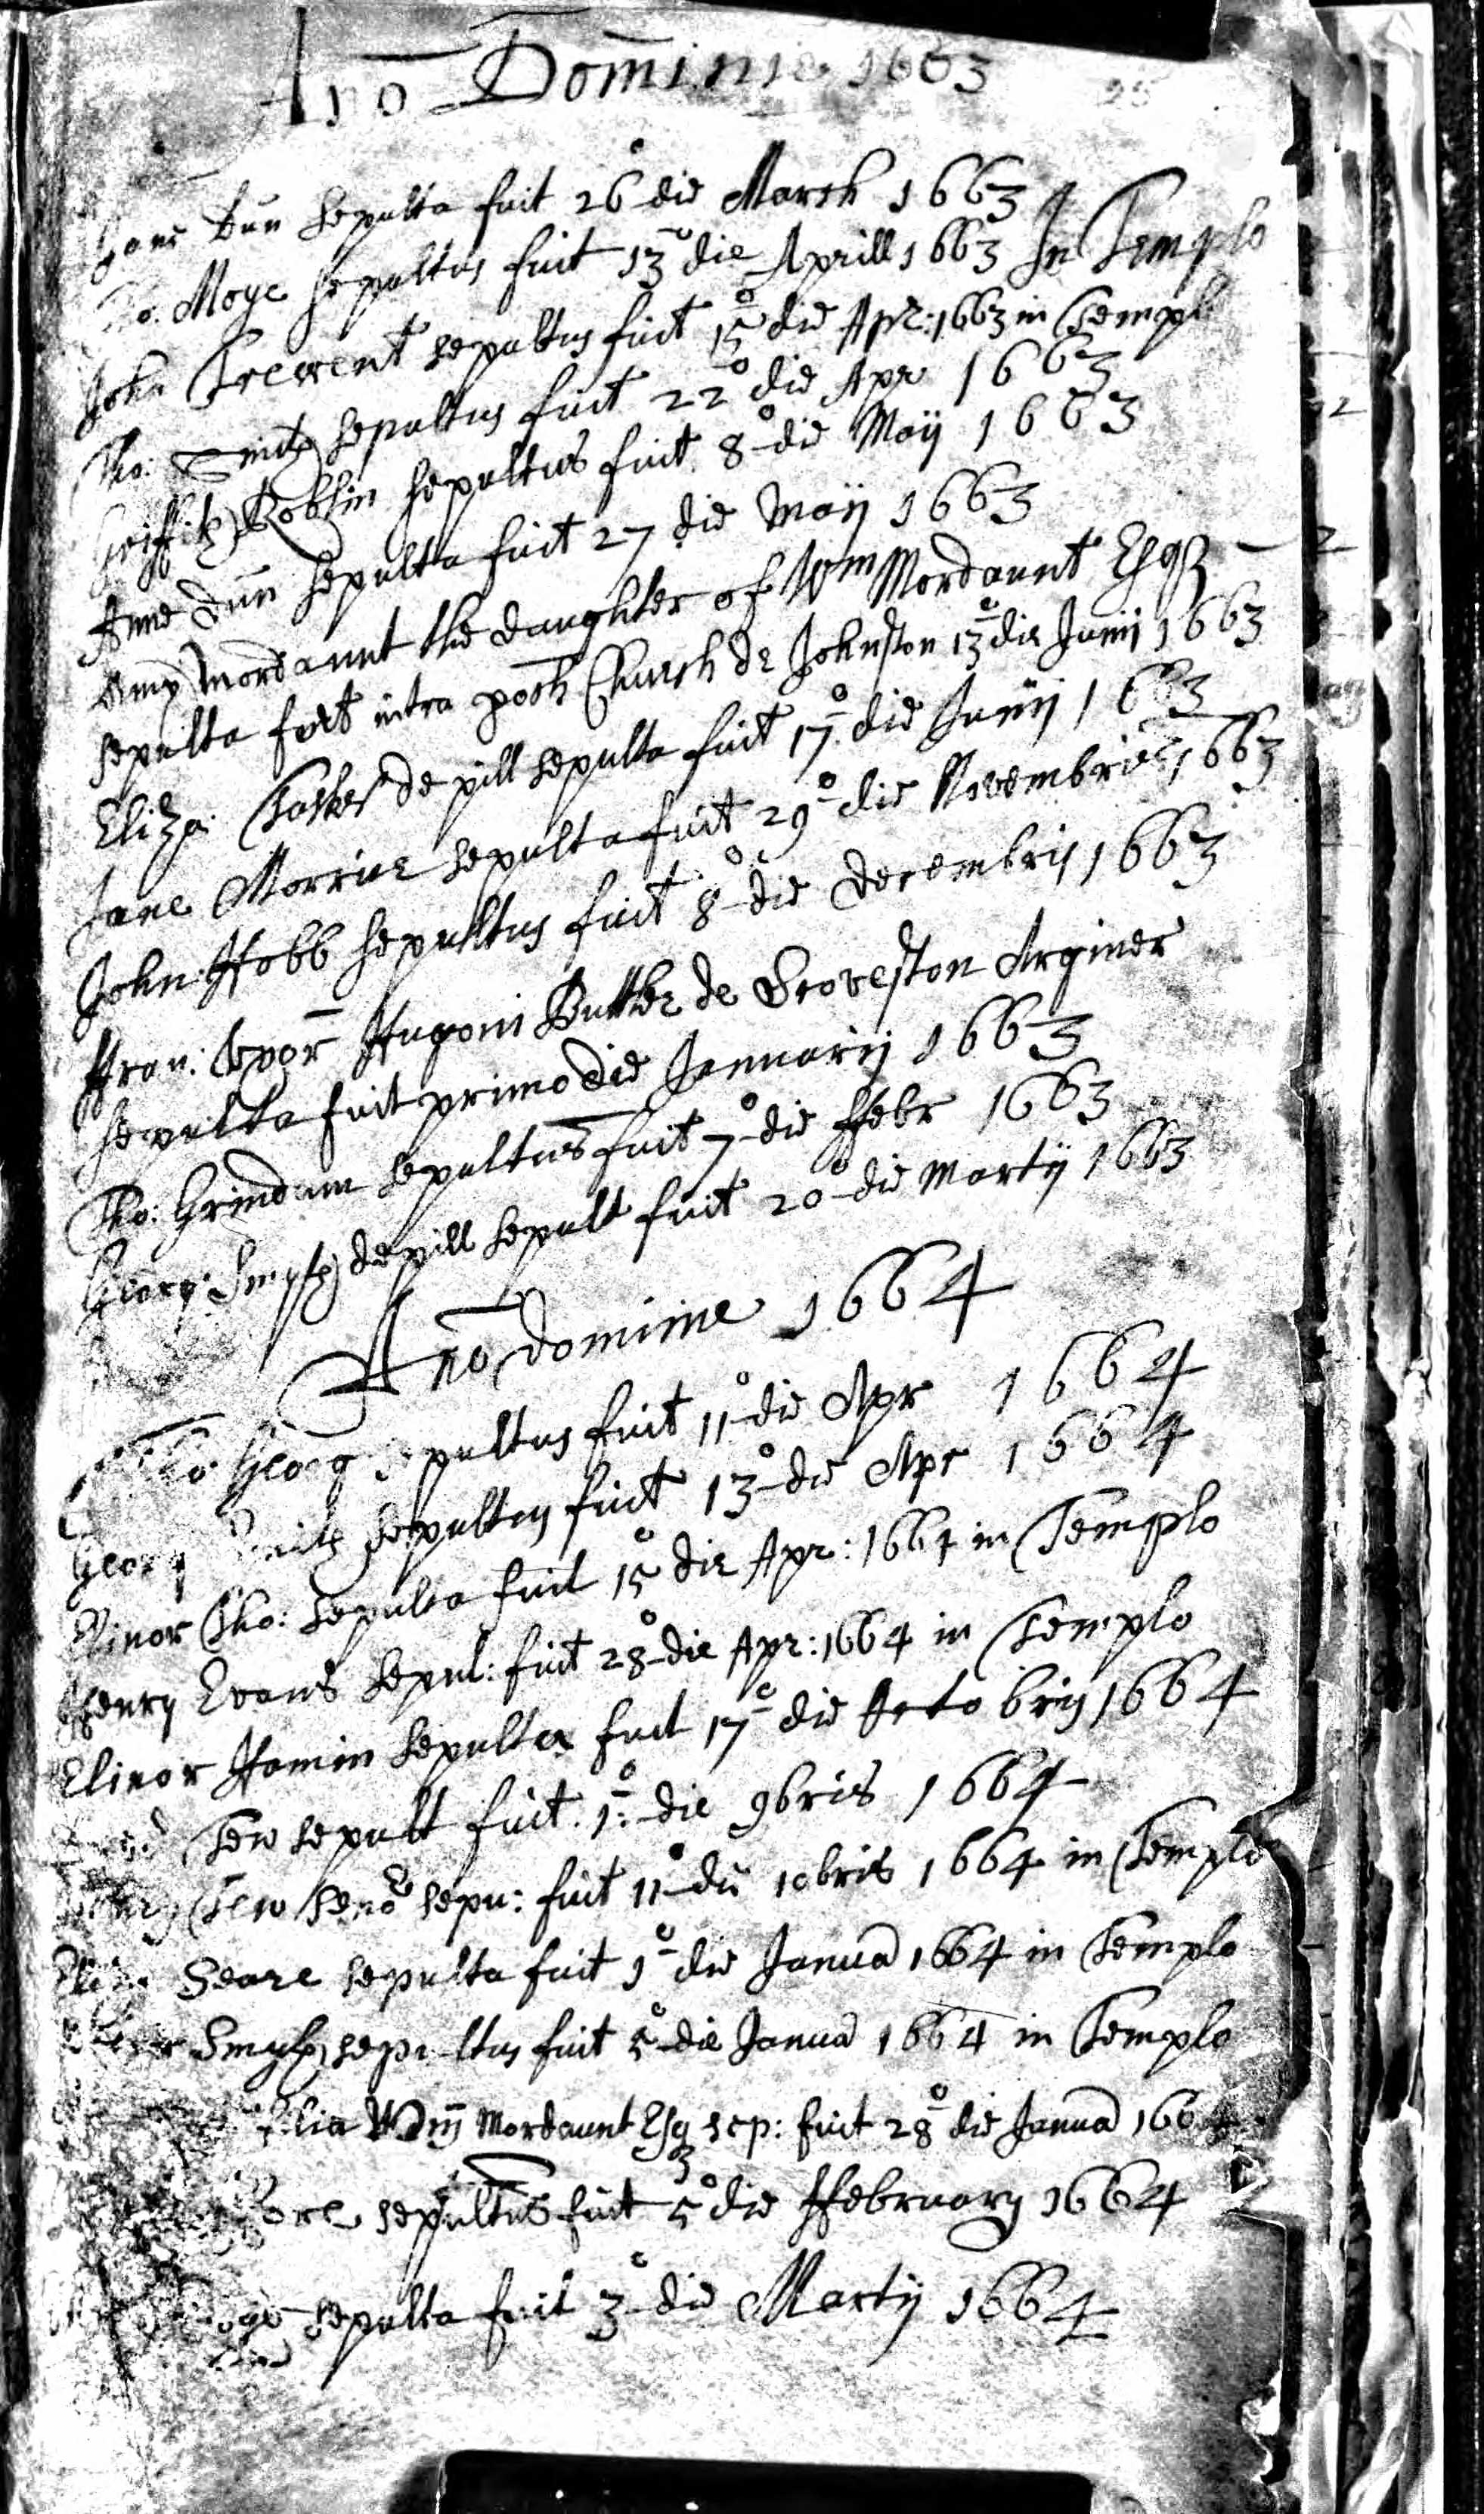 Ano Dominie 1663
Jane Dun sepulta fuit 26o die March 1663
Moye sepultus fuit 13o die Aprill 1663 In Templo
John Trewent sepultus fuit 15o die Apr: 1663 in Templo
Tho: Smith sepultus fuit 22o die Apr 1663
Griffith Roblin sepultus fuit 8o die Maij 1663
Anne Dun sepulta fuit 27 die Maij 1663
Mordaunt the daughter of Wm Mordaunt Esqr
sepulta fuit intra poch Church de Johnston 13o die Junij 1663
Eliza: Tasker de pill sepulta fuit 17o die Junij 1663
Jane Morrice sepulta fuit 29o die Novembris 1663
John Hobb sepultus fuit 8o die Decembris 1663
Fran: Uxor Hugonis Butler de Scoveston Armiger
sepulta fuit primo die Januarij 1663
Tho: Grindam sepultus fuit 7o die Febr 1663
Georg: Smyth de pill sepult fuit 20o die Martij 1663
Ano domine 1664
Tho: Georg sepultus fuit 11o die Apr 1664
Georg Smith sepultus fuit 13o die Apr 1664
Elinor Tho: sepulta fuit 15o die Apr: 1664 in Templo
Henry Evans sepul: fuit 28o die Apr: 1664 in Templo
Elinor Hamin sepulta fuit 17o die Octobris 1664
Tew sepult fuit 1o: die 9bris 1664
Tew seno sepu: fuit 11o die 10bris 1664 in Templo
Seare sepulta fuit 1o die Janua 1664 in Templo
Smyth sepultus fuit 5o die Janua 1664 in Templo
filia Wm Mordaunt Esq sep: fuit 28o die Janua 1664
sepultus fuit 5o die February 1664
sepulta fuit 3o die Martij 1664